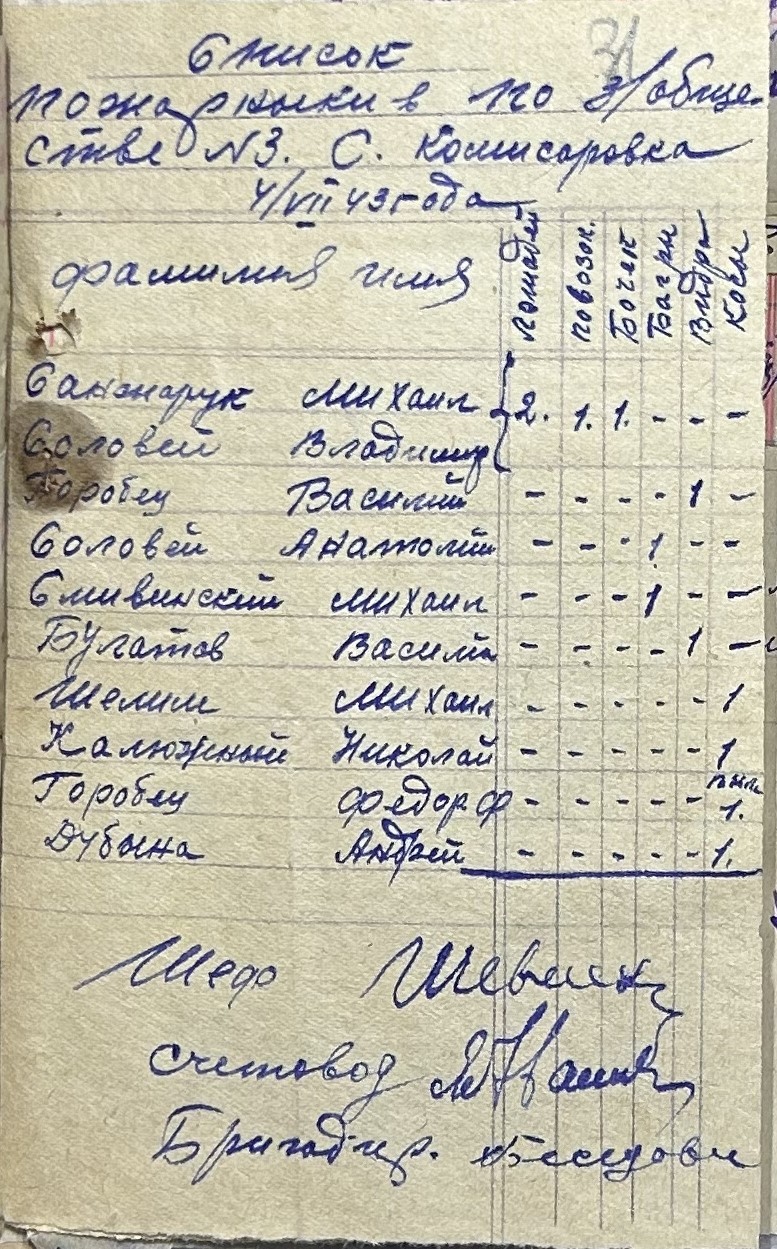 31
Список
пожарныкив по з/обще-
стве №3. С. Комисаровка
4/VII 43 года
фамилия имя лошадей повозок. Бочек Багри Видра Косы
Санжарук Михаил 2. 1. 1. - - -
Соловей Владимир
Горобец Василий - - - - 1 -
Соловей Анатолий - - - 1 - -
Сливинский Михаил - - - 1 - -
Булатов Василий - - - - 1 -
Шелим Михаил - - - - - 1
Калюжный Николай - - - - - 1
Горобец Федор Ф - - - - - 1.
Дубына Андрей - - - - - 1.
Шеф
Счетовод
Бригадир.